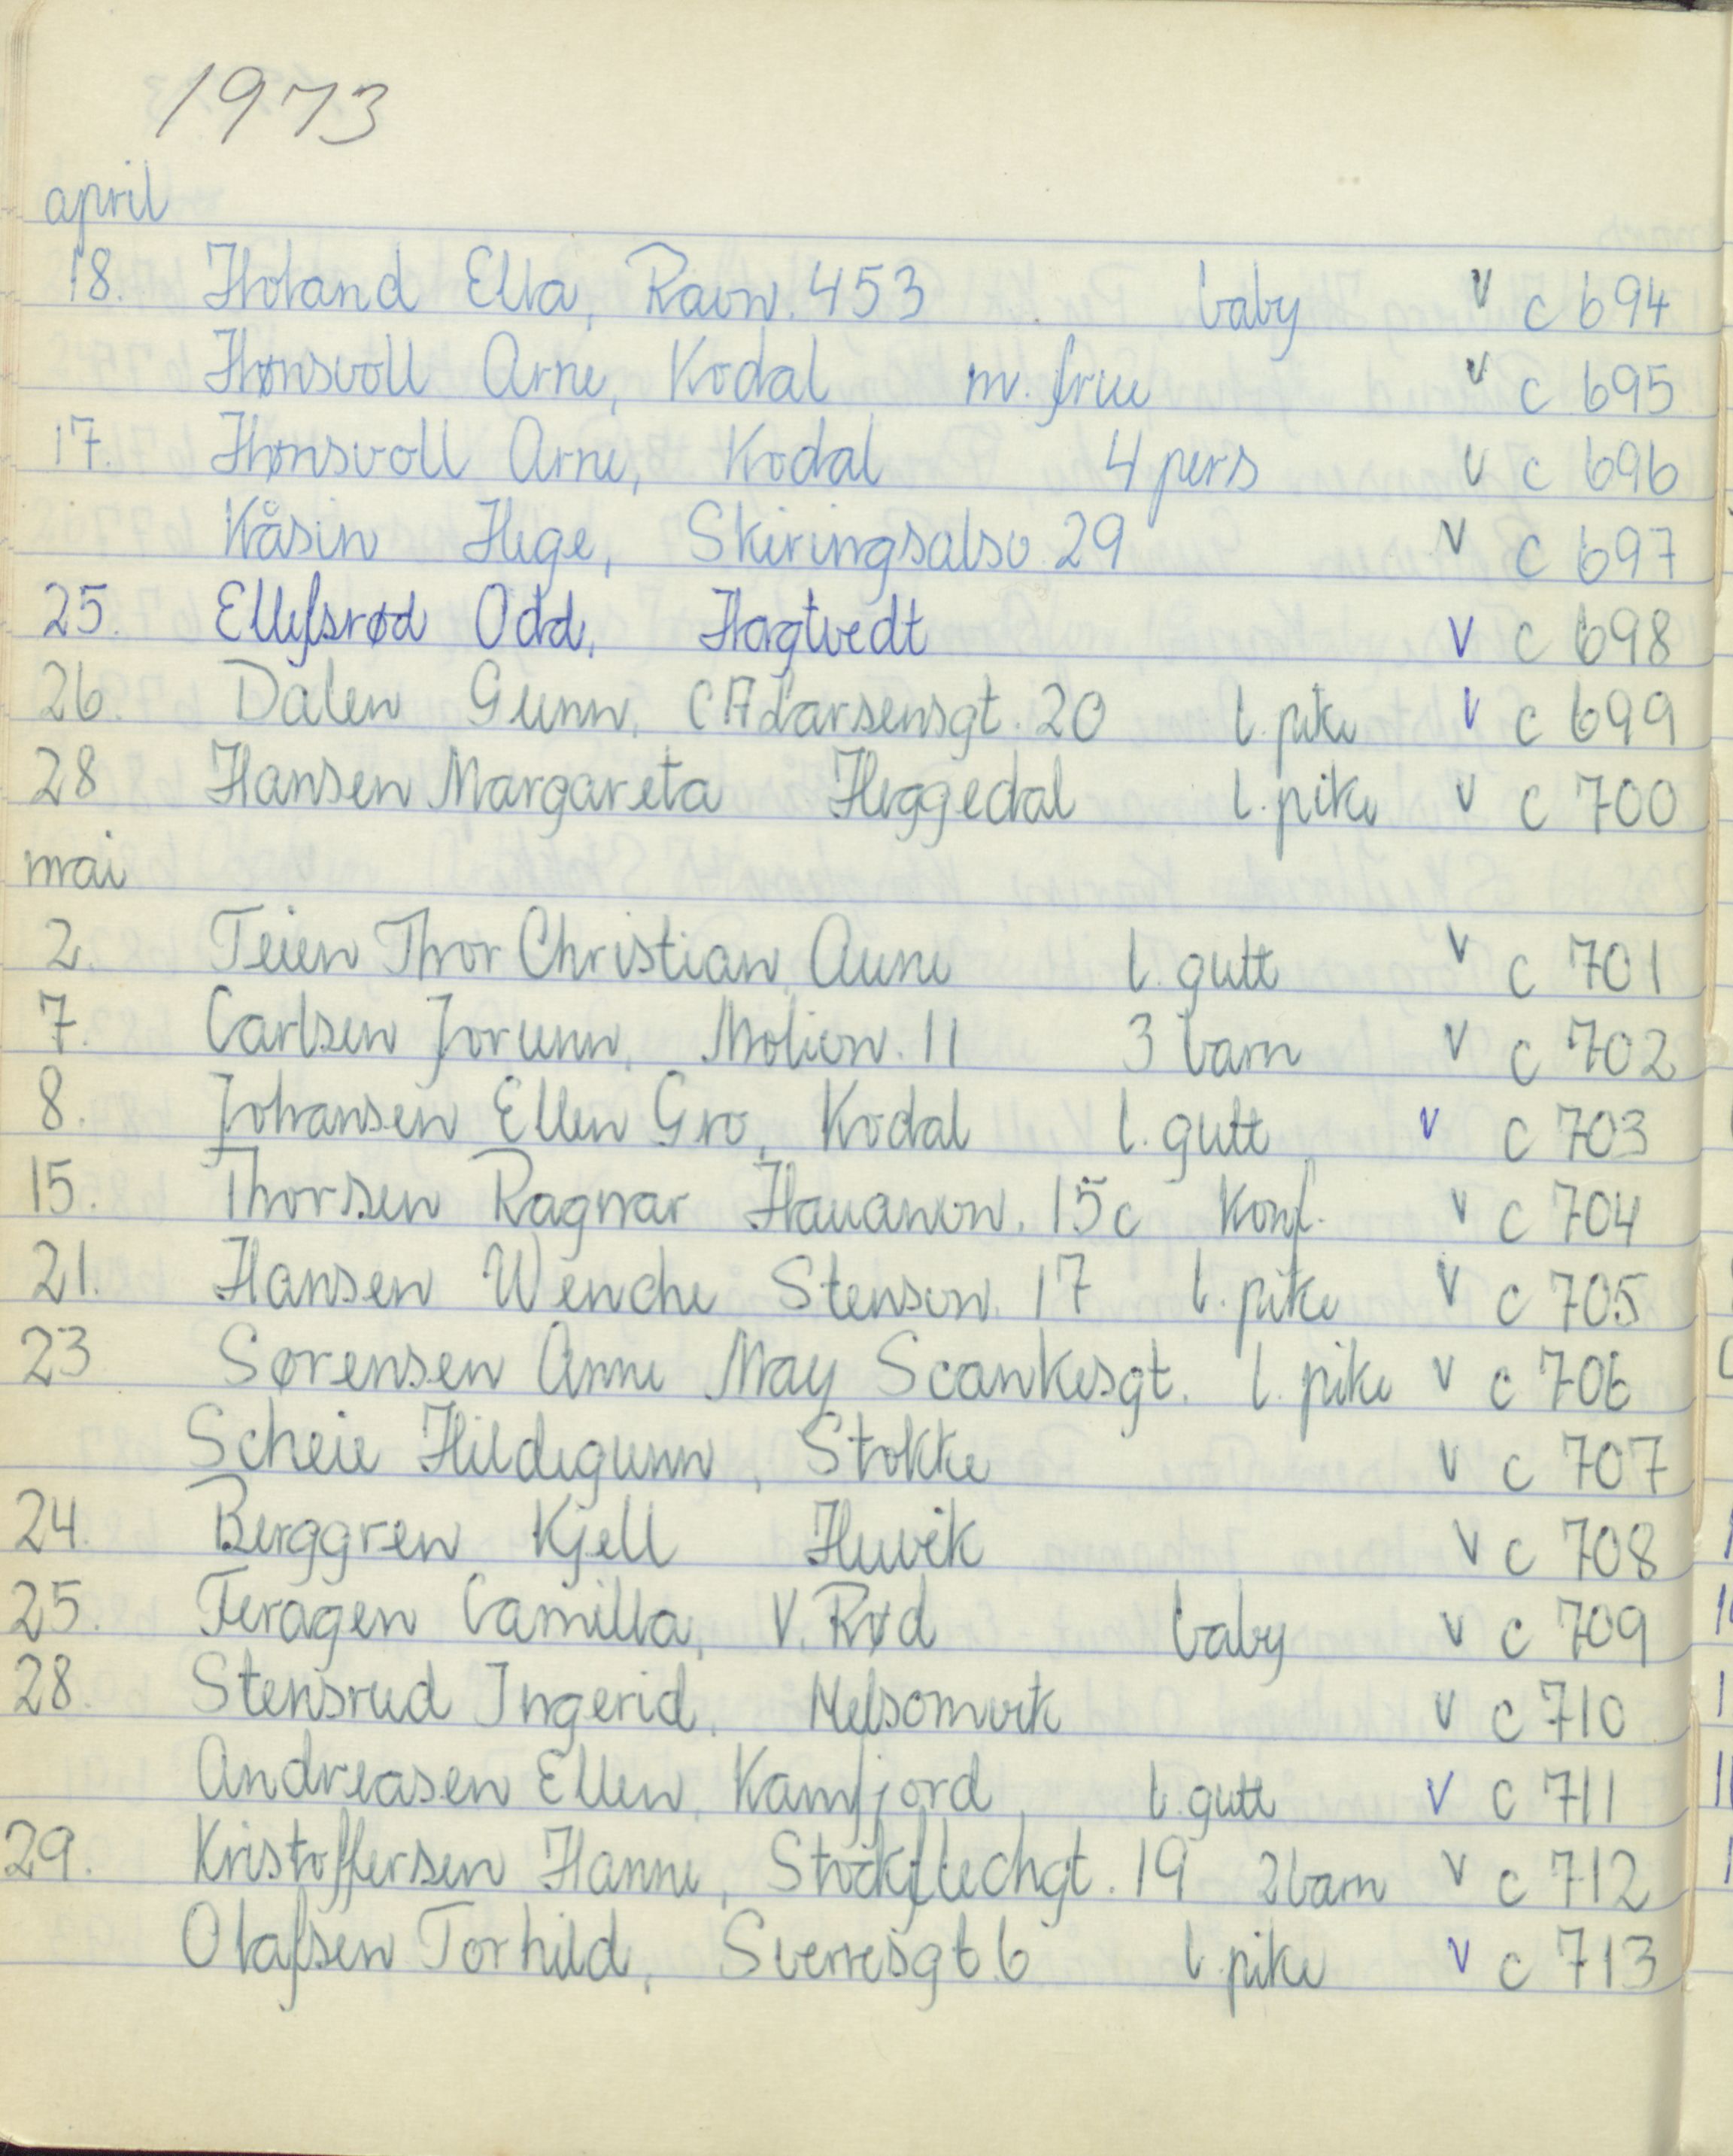 1973
april
18. Holand Ella, Ravn. 453 baby v c 694
Hønsvoll Arne, Kodal m. frue v c 695
17. Hønsvoll Arne, Kodal 4 pers v c 696
Kåsin Hege, Skiringsalsv. 29 v c 697
25. Ellefsrød Odd, Hogtvedt v c 698
26. Dalen Gunn, CA Larsensgt. 20 l. pike v c 699
28 Hansen Margareta Heggedal l. pike v c 700
mai
2. Teien Thor Christian, Aune l. gutt v c 701
7. Carlsen Jorunn, Moliv. 11 3 barn v c 702
8. Johansen Ellen Gro, Kodal l. gutt v c 703
15. Thorsen Ragnar Hauanvn. 15c Konf. v c 704
21. Hansen Wenche Stensvn. 17 l. pike v c 705
23 Sørensen Anne May Scankesgt. l. pike v c 706
Scheie Hildegunn, Stokke v c 707
24. Berggren Kjell Huvik v c 708
25. Feragen Camilla, V. Rød baby v c 709
28. Stensrud Ingerid. Melsomvik v c 710
Andreasen Ellen, Kamfjord l. gutt v c 711
29. Kristoffersen Hanne, Stockflechgt. 19 2 barn v c 712
Olafsen Torhild, Sverresgt 6 l. pike v c 713